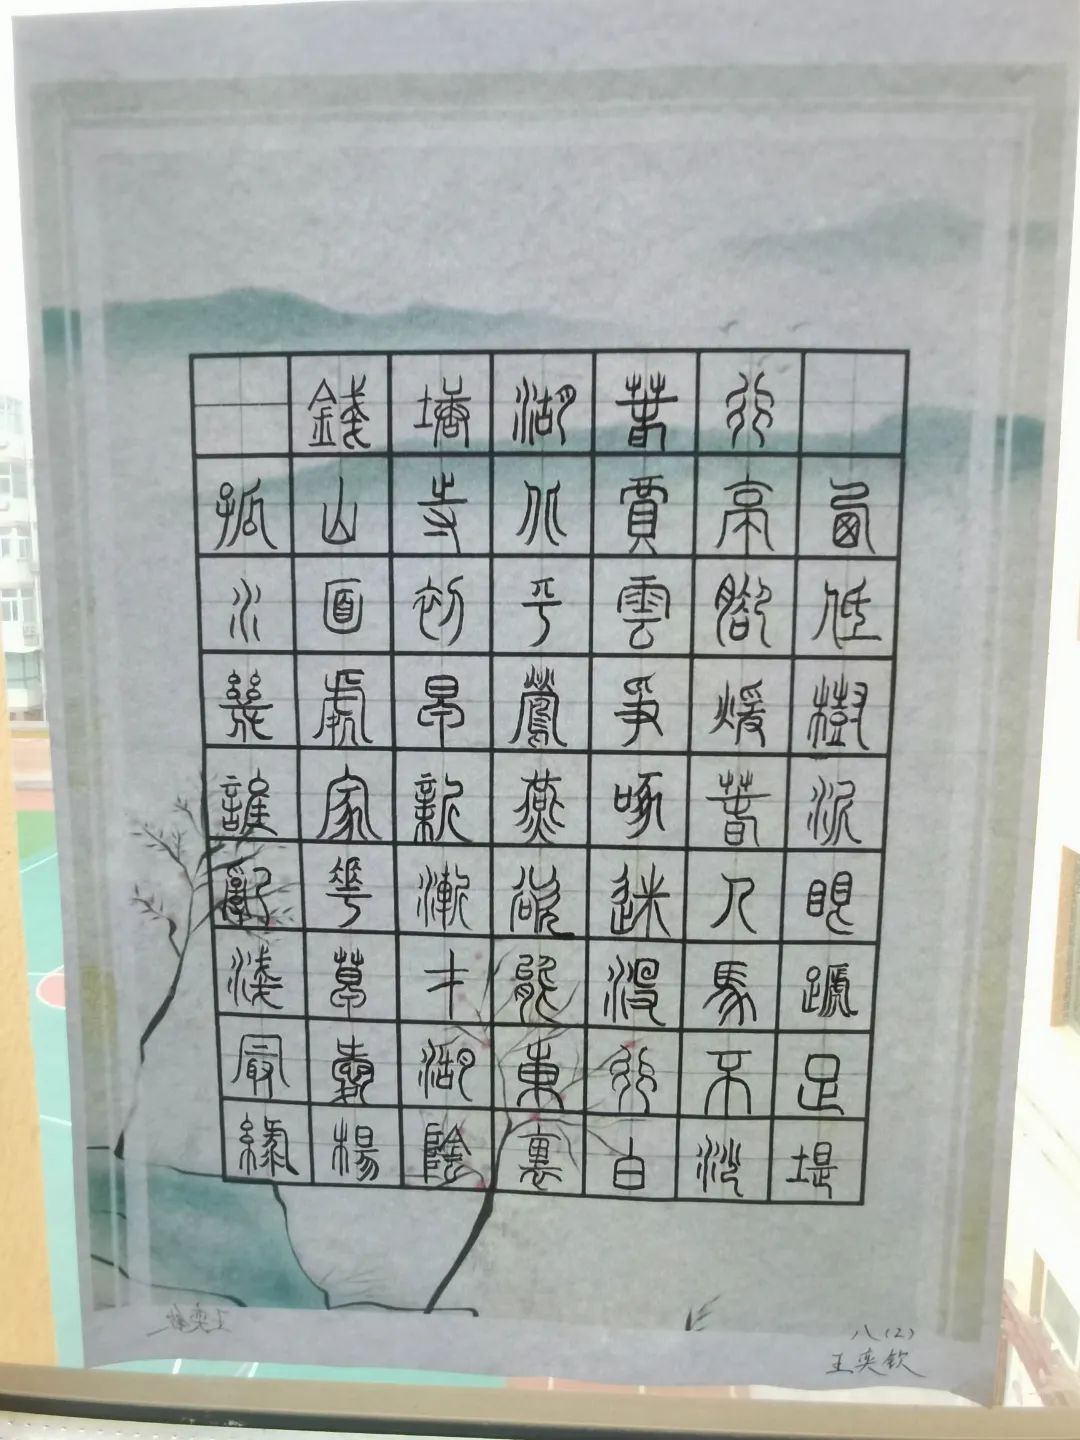 錢塘湖春行
孤山寺北賈亭西
水面初平雲腳低
幾處早鶯爭煖樹
誰家新燕啄春泥
亂花漸欲迷人眼
淺草才能沒馬蹏
最愛湖東行不足
綠楊陰裏白沙堤
八(2)
王奕钦